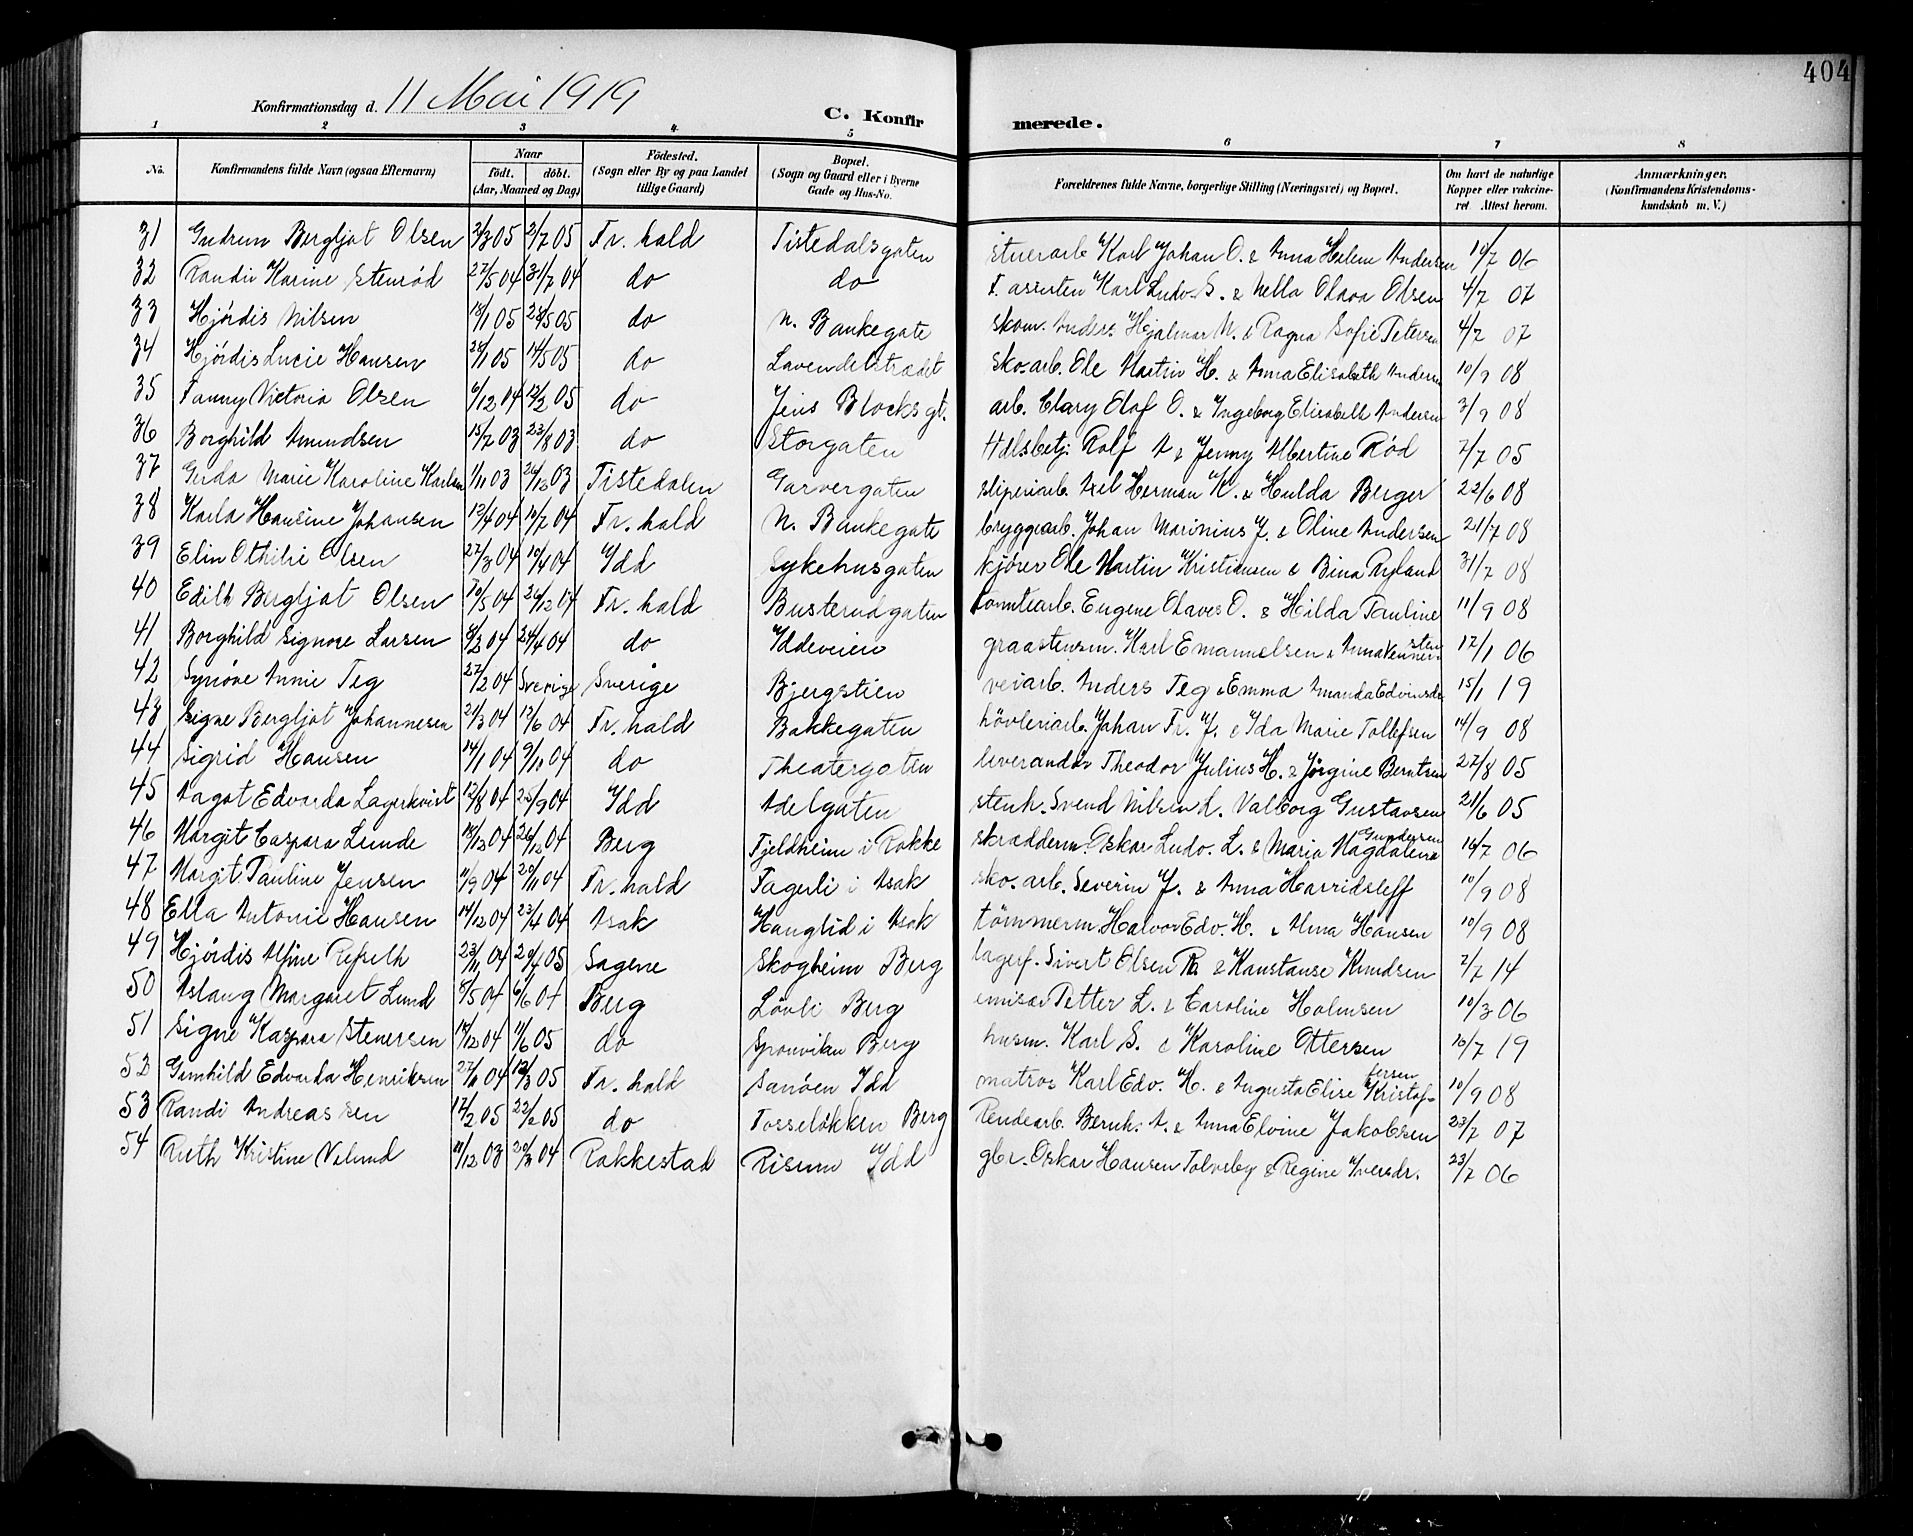 404
Konfirmationsdag d. 11 Mai 1919
C. Konfirmerede.
1 2 3 4 5 6 7 8
No. Konfirmandens fulde Navn (ogsaa Efternavn) Naar födt. döbt. (Aar, Maaned og Dag) Födested. (Sogn eller By og paa Landet tillige Gaard) Bopæl. (Sogn og Gaard eller i Byerne Gade og Hus-No. Forældrenes fulde Navne, borgerlige Stilling (Næringsvei) og Bopæl. Om havt de naturlige Kopper eller vakcineret Attest herom. Anmærkninger. (Konfirmandens Kristendomskundskab m. V.)
31 Gudrun Bergljot Olsen 2/3 05 2/7 05 Fr.hald Tistedalsgaten stuerarb Karl Johan O. & Anna Helene Andersen 14/7 06
32 Randi Karine Stenród 27/5 04 31/7 04 do do Karl Ludv. S. & Olava Olsen 4/7 07
33 Hjórdis Nilsen 18/1 05 28/5 05 do N. Bankegate skom. Anders Hjalmar N. & Ragna Sofie Petersen 4/7 07
34 Hjórdis Lucie Hansen 28/1 05 14/5 05 do Lavendelstrædet sko.arb. Ole Martin H. & Anna Elisabeth Andersen 10/9 08
35 Fanny Victoria Olsen 6/12 04 12/2 05 do Jens Blocks gt. arb. Clary Olof O. & Ingeborg Elisabeth Andersen 3/9 08
36 Borghild Amundsen 15/7 03 23/8 03 do Storgaten Hdlsbetj. Rolf A & Jenny Albertine Rød 7/7 05
37 Gerda Marie Karoline Karlsen 1/11 03 26/12 03 Tistedalen Garvergaten sliperiarb. Axel Herman K. & Hulda Berger 22/6 08
38 Karla Hansine Johansen 12/4 04 10/7 04 Fr.hald N. Bankegate bryggearb. Johan Marinius J. & Oline Andersen 21/7 08
39 Elin Othilie Olsen 27/3 04 10/4 04 Idd Sykehusgaten kjører Ole Martin Kristiansen & Bina Ryland 31/7 08
40 Edith Bergljot Olsen 10/5 04 26/12 04 Fr.hald Busterudgaten tomtearb. Eugene Olaves O. & Hilda Pauline 11/9 08
41 Borghild Signore Larsen 8/2 04 24/4 04 do Iddeveien graastensm. Karl Emanuelsen & Anna 17/1 06
42 Synóve Annie Teg 27/2 04 Sverige Sverige Bjergstien veiarb. Anders Teg & Emma Amanda Edvinsdr 15/1 19
43 Signe Bergljot Johannesen 21/3 04 12/6 04 Fr.hald Bakkegaten hövleriarb. Johan Fr. J. & Ida Marie Tollefsen 14/9 08
44 Sigrid Hansen 14/1 04 9/10 04 do Theatergaten leverandör Theodor Julius H. & Jörgine Berntsen 27/8 05
45 Aagot Edvarda Lagerkvist 12/8 04 25/9 04 Idd Adelgaten stenh. Svend Nilsen L. Valborg Gustavsen 21/6 05
46 Margit Caspara Lunde 18/12 04 26/12 04 Berg Fjeldheim i Rokke skrædderm. Oskar Ludv. L. & Maria Magdalena Gundersen 14/7 06
47 Margit Pauline Jensen 11/9 04 20/11 04 Fr.hald Fagerli i Asak sko.arb. Severin J. & Anna Harridsleff 10/9 08
48 Ella Antonie Hansen 14/12 04 23/4 04 Asak Hanglid i Asak tömmerm. Halvor Edv. H. & Anna Hansen 10/9 08
49 Hjórdis Alfine Refseth 23/11 04 20/4 05 Sagene Skogheim Berg lagerf. Sivert Olsen R. & Konstanse Knudsen 2/7 14
50 Aslaug Margaret Lund 8/5 04 6/6 04 Berg Lövli Berg Petter L. & Caroline Holmsen 10/3 06
51 Signe Kaspara Stenersen 14/12 04 11/6 05 do Sponvika Berg husm. Karl S. & Karoline Ottersen 10/7 19
52 Gunhild Edvarda Henriksen 27/11 04 12/3 05 Fr.hald Sanöen Idd matros Karl Edv. H. & Augusta Elise Kristoffersen 10/9 08
53 Randi Andreassen 12/2 05 22/2 05 do Fosselökken Berg Rendearb. Bernh. A. & Anna Elvine Jakobsen 23/7 07
54 Ruth Kristine Nolund 11/12 03 20/3 04 Rakkestad Risum Idd gbr. Oskar Hansen Tolvsby & Regine Iversdr. 23/7 06